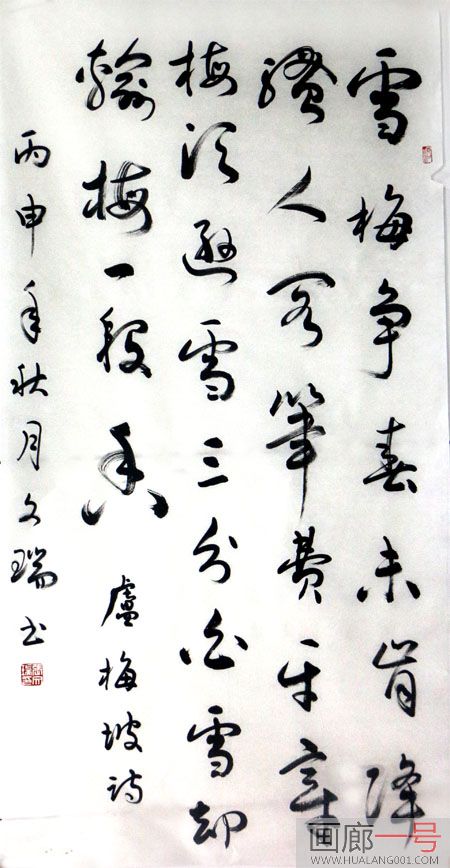 雪梅争春未肯降
骚人阁筆費平章
梅須遜雪三分白雪却
輸梅一段香 盧梅坡诗
丙申年秋月文瑞书
画廊一号
WWW.HUALANG001.COM